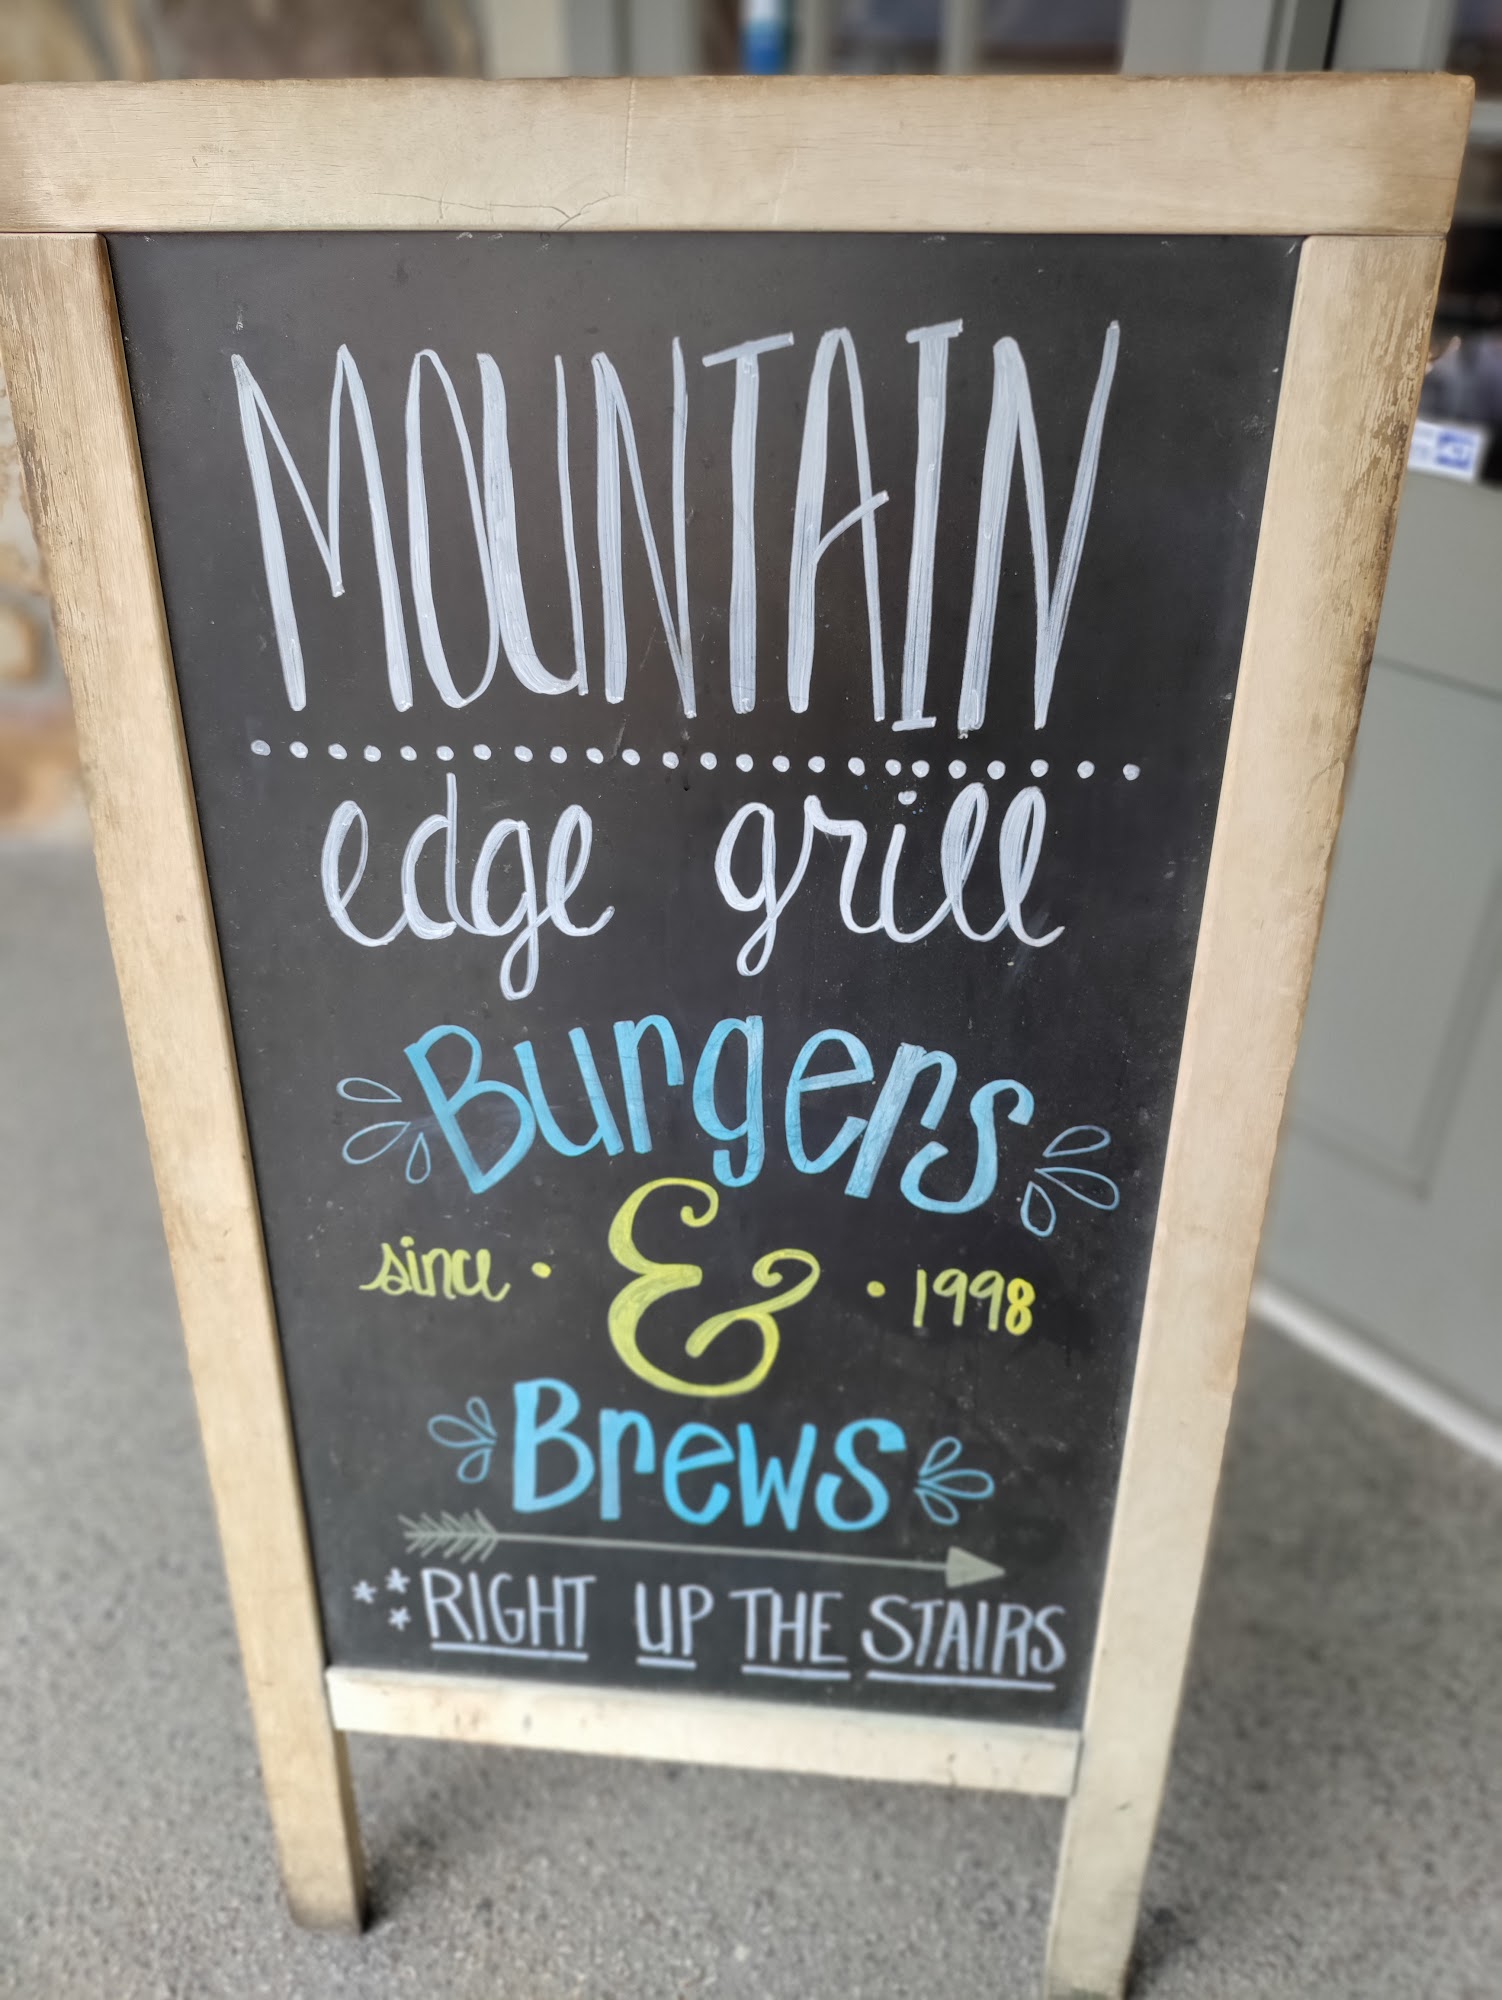 MOUNTAIN
edge grill
Burgers
since • & • 1998
Brews
*** RIGHT UP THE STAIRS